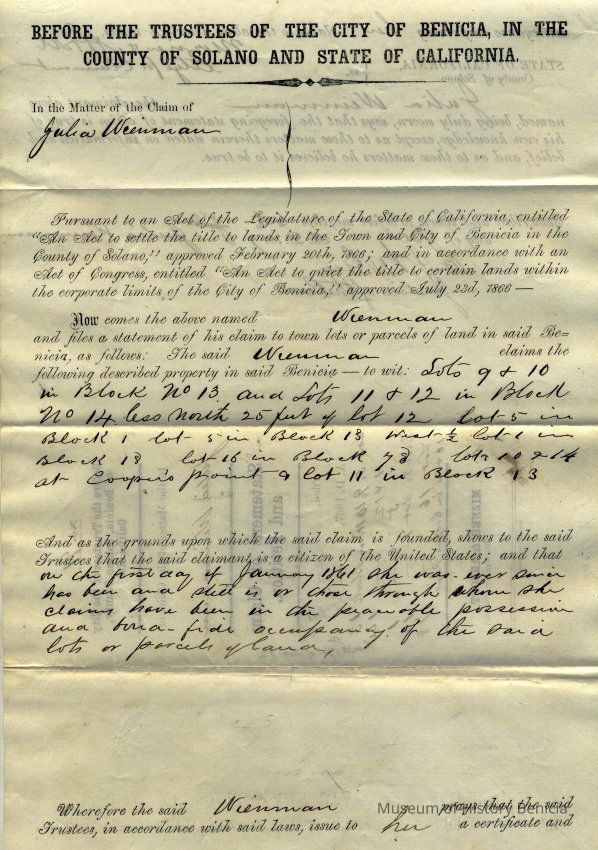 BEFORE THE TRUSTEES OF THE CITY OF BENICIA, IN THE
COUNTY OF SOLANO AND STATE OF CALIFORNIA.
In the Matter of the Claim of
Julia Wienman
Pursuant to an Act of the Legislature of the State of California, entitled
"An Act to settle the title to lands in the Town and City of Benicia in the
County of Solano," approved February 20th, 1866; and in accordance with an
Act of Congress, entitled "An Act to quiet the title to certain lands within
the corporate limits of the City of Benicia," approved July 23d, 1866—
Now comes the above named Wienman
and files a statement of his claim to town lots or parcels of land in said Be=
nicia, as follows: The said Wienman claims the
following described property in said Benicia — to wit: Lots 9 & 10
in Block No 13 and Lots 11 & 12 in Block
No 14 less north 25 feet of lot 12 lot 5 in
Block 1 lot 5 in Block 13 West ½ lot 1 in
Block 13 lot 16 in Block 73 lots 10 & 14
at Cooper's point & lot 11 in Block 13
And as the grounds upon which the said claim is founded, shows to the said
Trustees that the said claimant is a citizen of the United States; and that
on the first day of January 1861 she was ever since
has been and still is or those through whom she
claims have been in the peaceable possession
and bona-fide occupancy of the said
lots or parcels of land,
Wherefore the said Wienman prays that the said
Trustees, in accordance with said laws, issue to her a certificate and
Museum of History Benicia